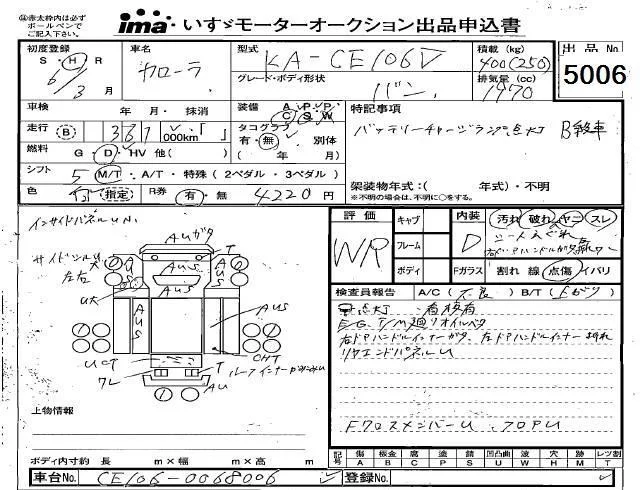 ㊟赤太枠内は必ず
ボールペンで
ご記入下さい。
ima いすゞモーターオークション出品申込書
初度登録 車名 型式 積載(kg) 出品No
S・H・R カローラ KA-CE106V 400(250) 5006
6/3月 グレード・ボディ形状 排気量(cc)
バン 1970
車検 年 月・ 抹消 装備 A・P・P 特記事項
C・S・W
走行 B 361 000km「 」 タコグラフ バッテリーチャージランプ点灯 B級車
有・無 別体
燃料 G・D・HV 他( ) ( 年 月)
シフト 5 M/T・A/T・特殊(2ペダル・3ペダル)
架装物年式:( 年式)・不明
色 白 指定 R券 有・無 4220円 ※不明の場合は、不明に○をする。
インサイドパネルUN. 評価 キャブ 内装 汚れ 破れ ヤニ スレ
AUガタ
サイドシルU T W/R フレーム D シート人エぐれ
左右 大 AUS AUS AUS
U大 ボディ Fガラス 割れ 線 点傷 イバリ
検査員報告 A/C(不良) B/T(上がり)
AUS AUS 点灯
E/G. T/M廻りオイルベタ
右ドアハンドルインナーガタ、左ドアハンドルインナー折れ
UCT CHT リヤエンドパネルU
ワレ T ルーフインナー
AU
上物情報
FクロスメンバーU、フロアU
記号 傷 板金 腐 塗 錆 凹凸曲 波 穴 跡 レツ割
A B C P S U W H M T
ボディ内寸約 長 m×幅 m×高 m
車台No. CE106-0068006 登録No.